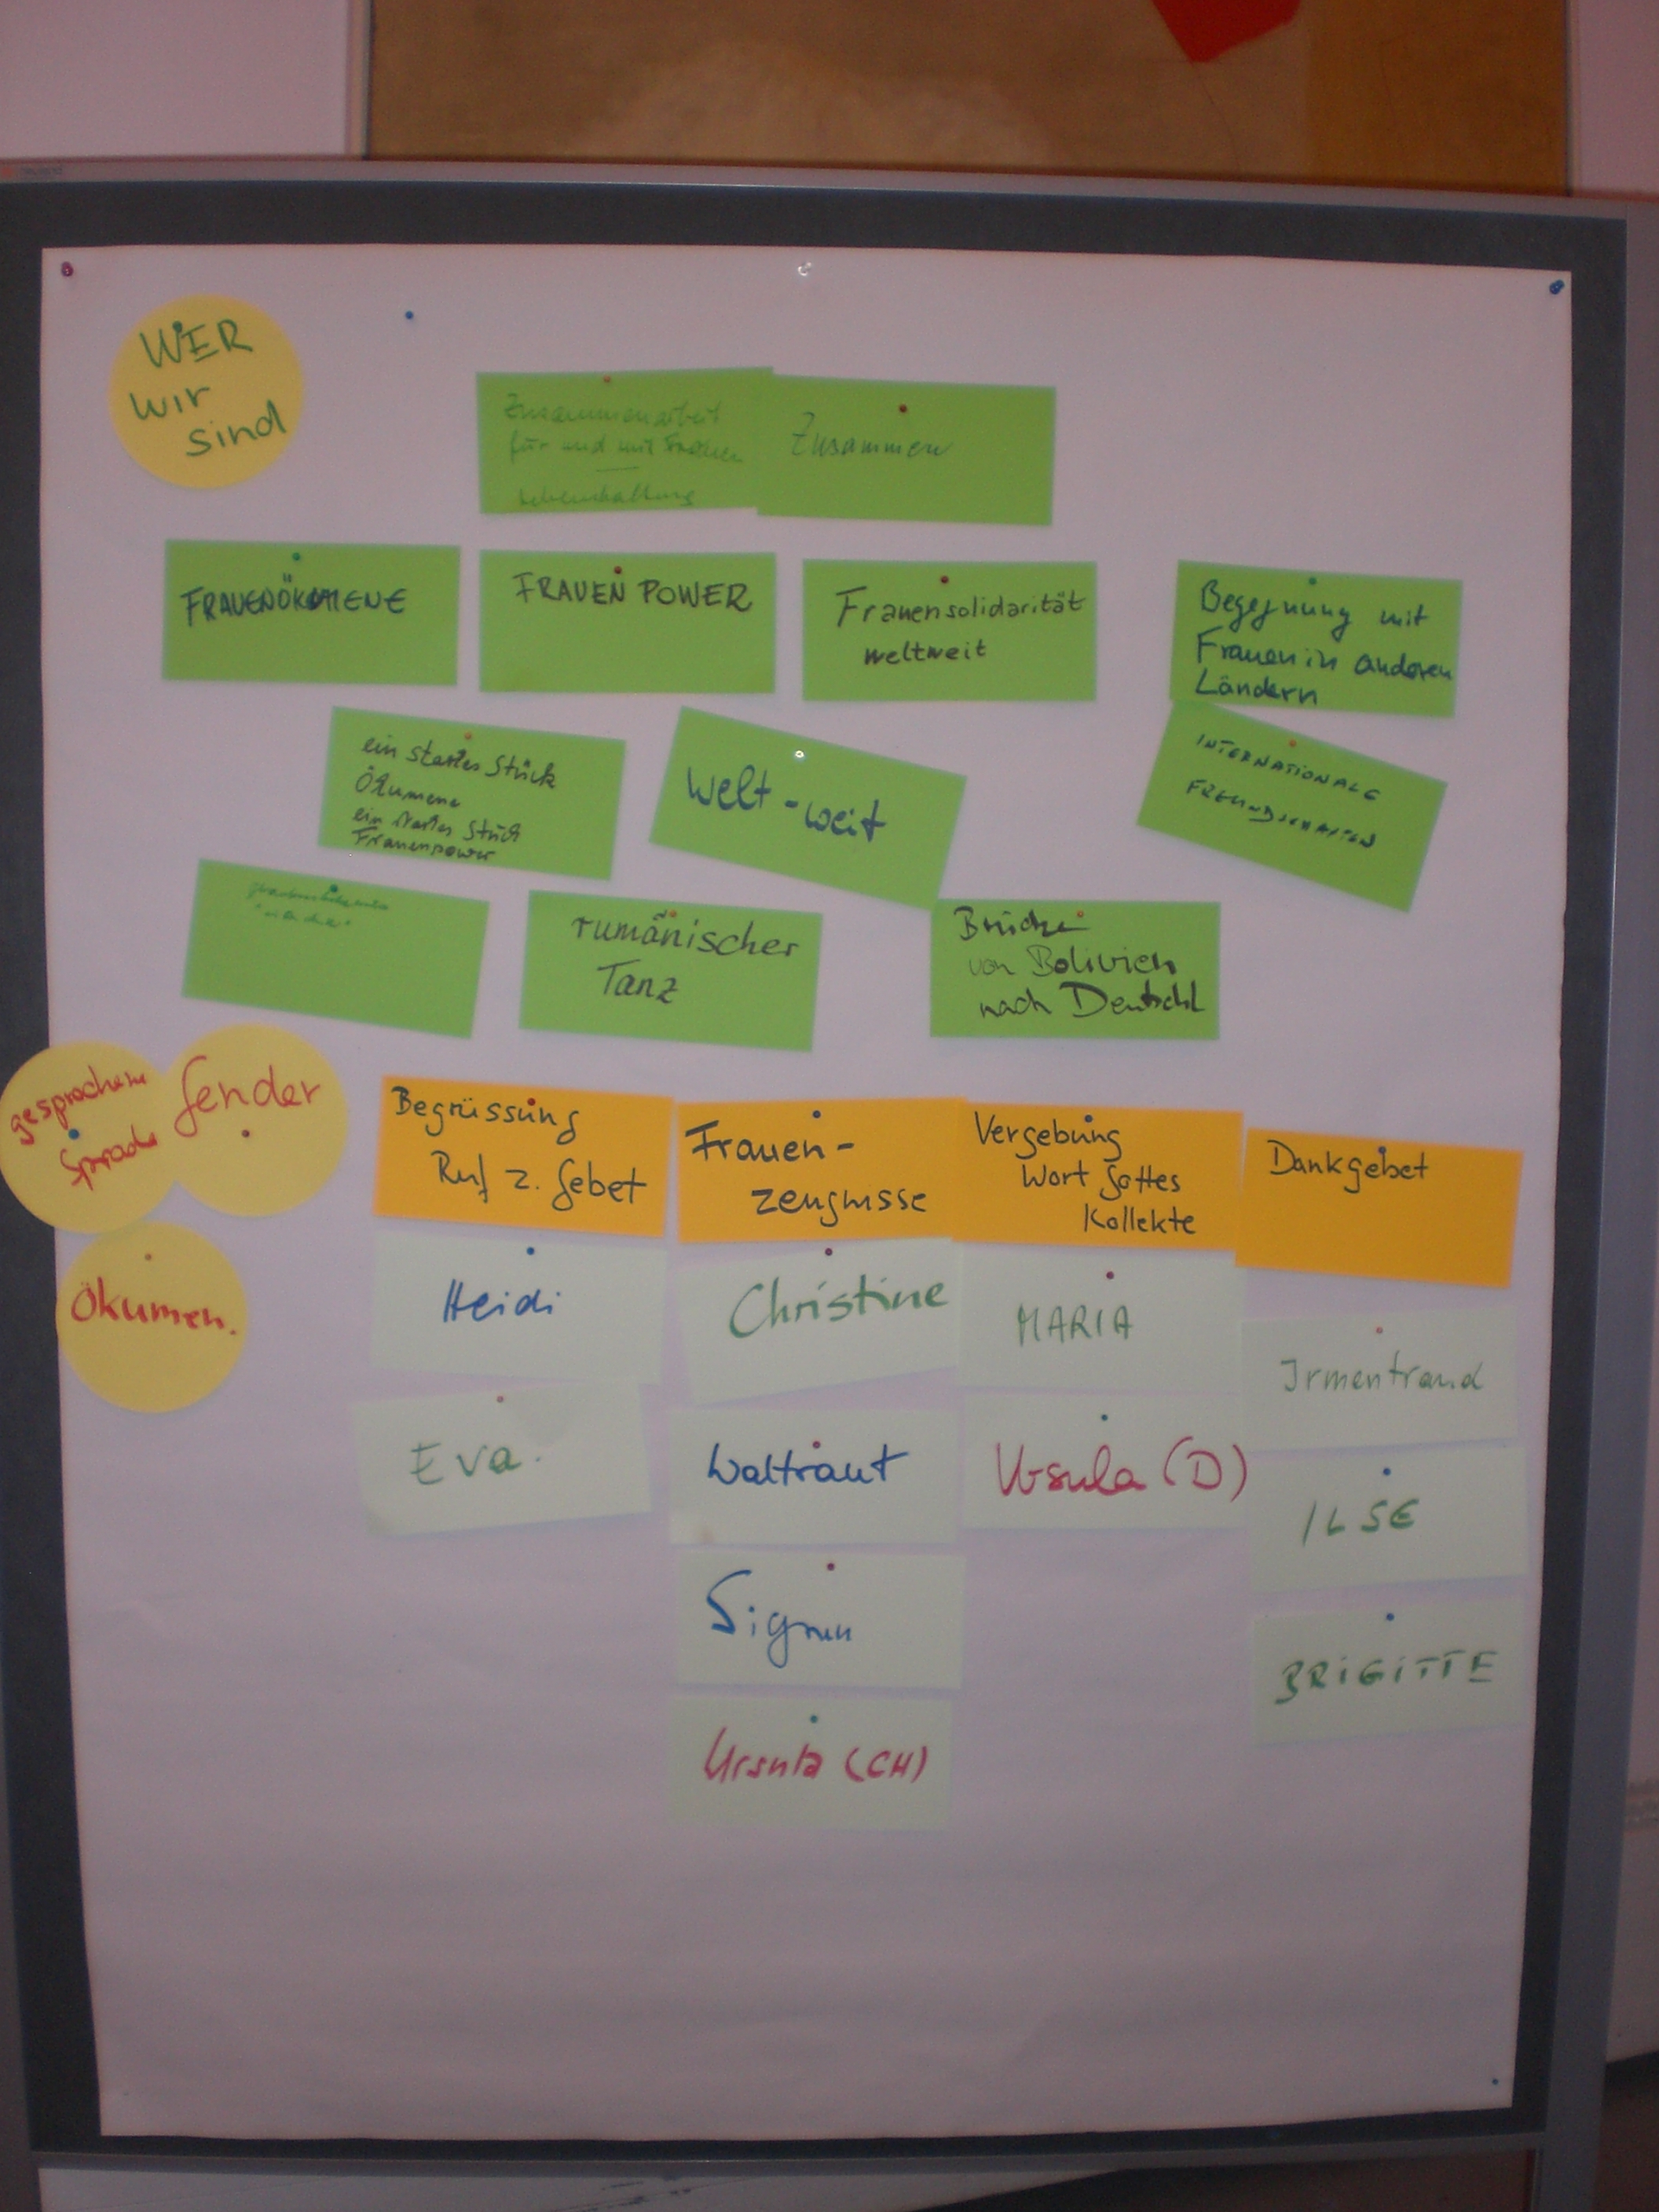 WER
wir
sind
Zusammenarbeit
für und mit Frauen
Zusammen
FRAUENÖKUMENE
FRAUEN POWER
Frauensolidarität
weltweit
Begegnung mit
Frauen in anderen
Ländern
ein starkes Stück
Ökumene
ein starkes Stück
Frauenpower
Welt-weit
INTERNATIONALE
FREUNDSCHAFTEN
rumänischer
Tanz
Brücke
von Bolivien
nach Deutschl
gesprochene
Sprache
Gender
Ökumen.
Begrüssung
Ruf z. Gebet
Heidi
Eva.
Frauen-
zeugnisse
Christine
Waltraut
Sigrun
Ursula (CH)
Vergebung
Wort Gottes
Kollekte
MARIA
Ursula (D)
Dankgebet
Irmentraud
ILSE
BRIGITTE